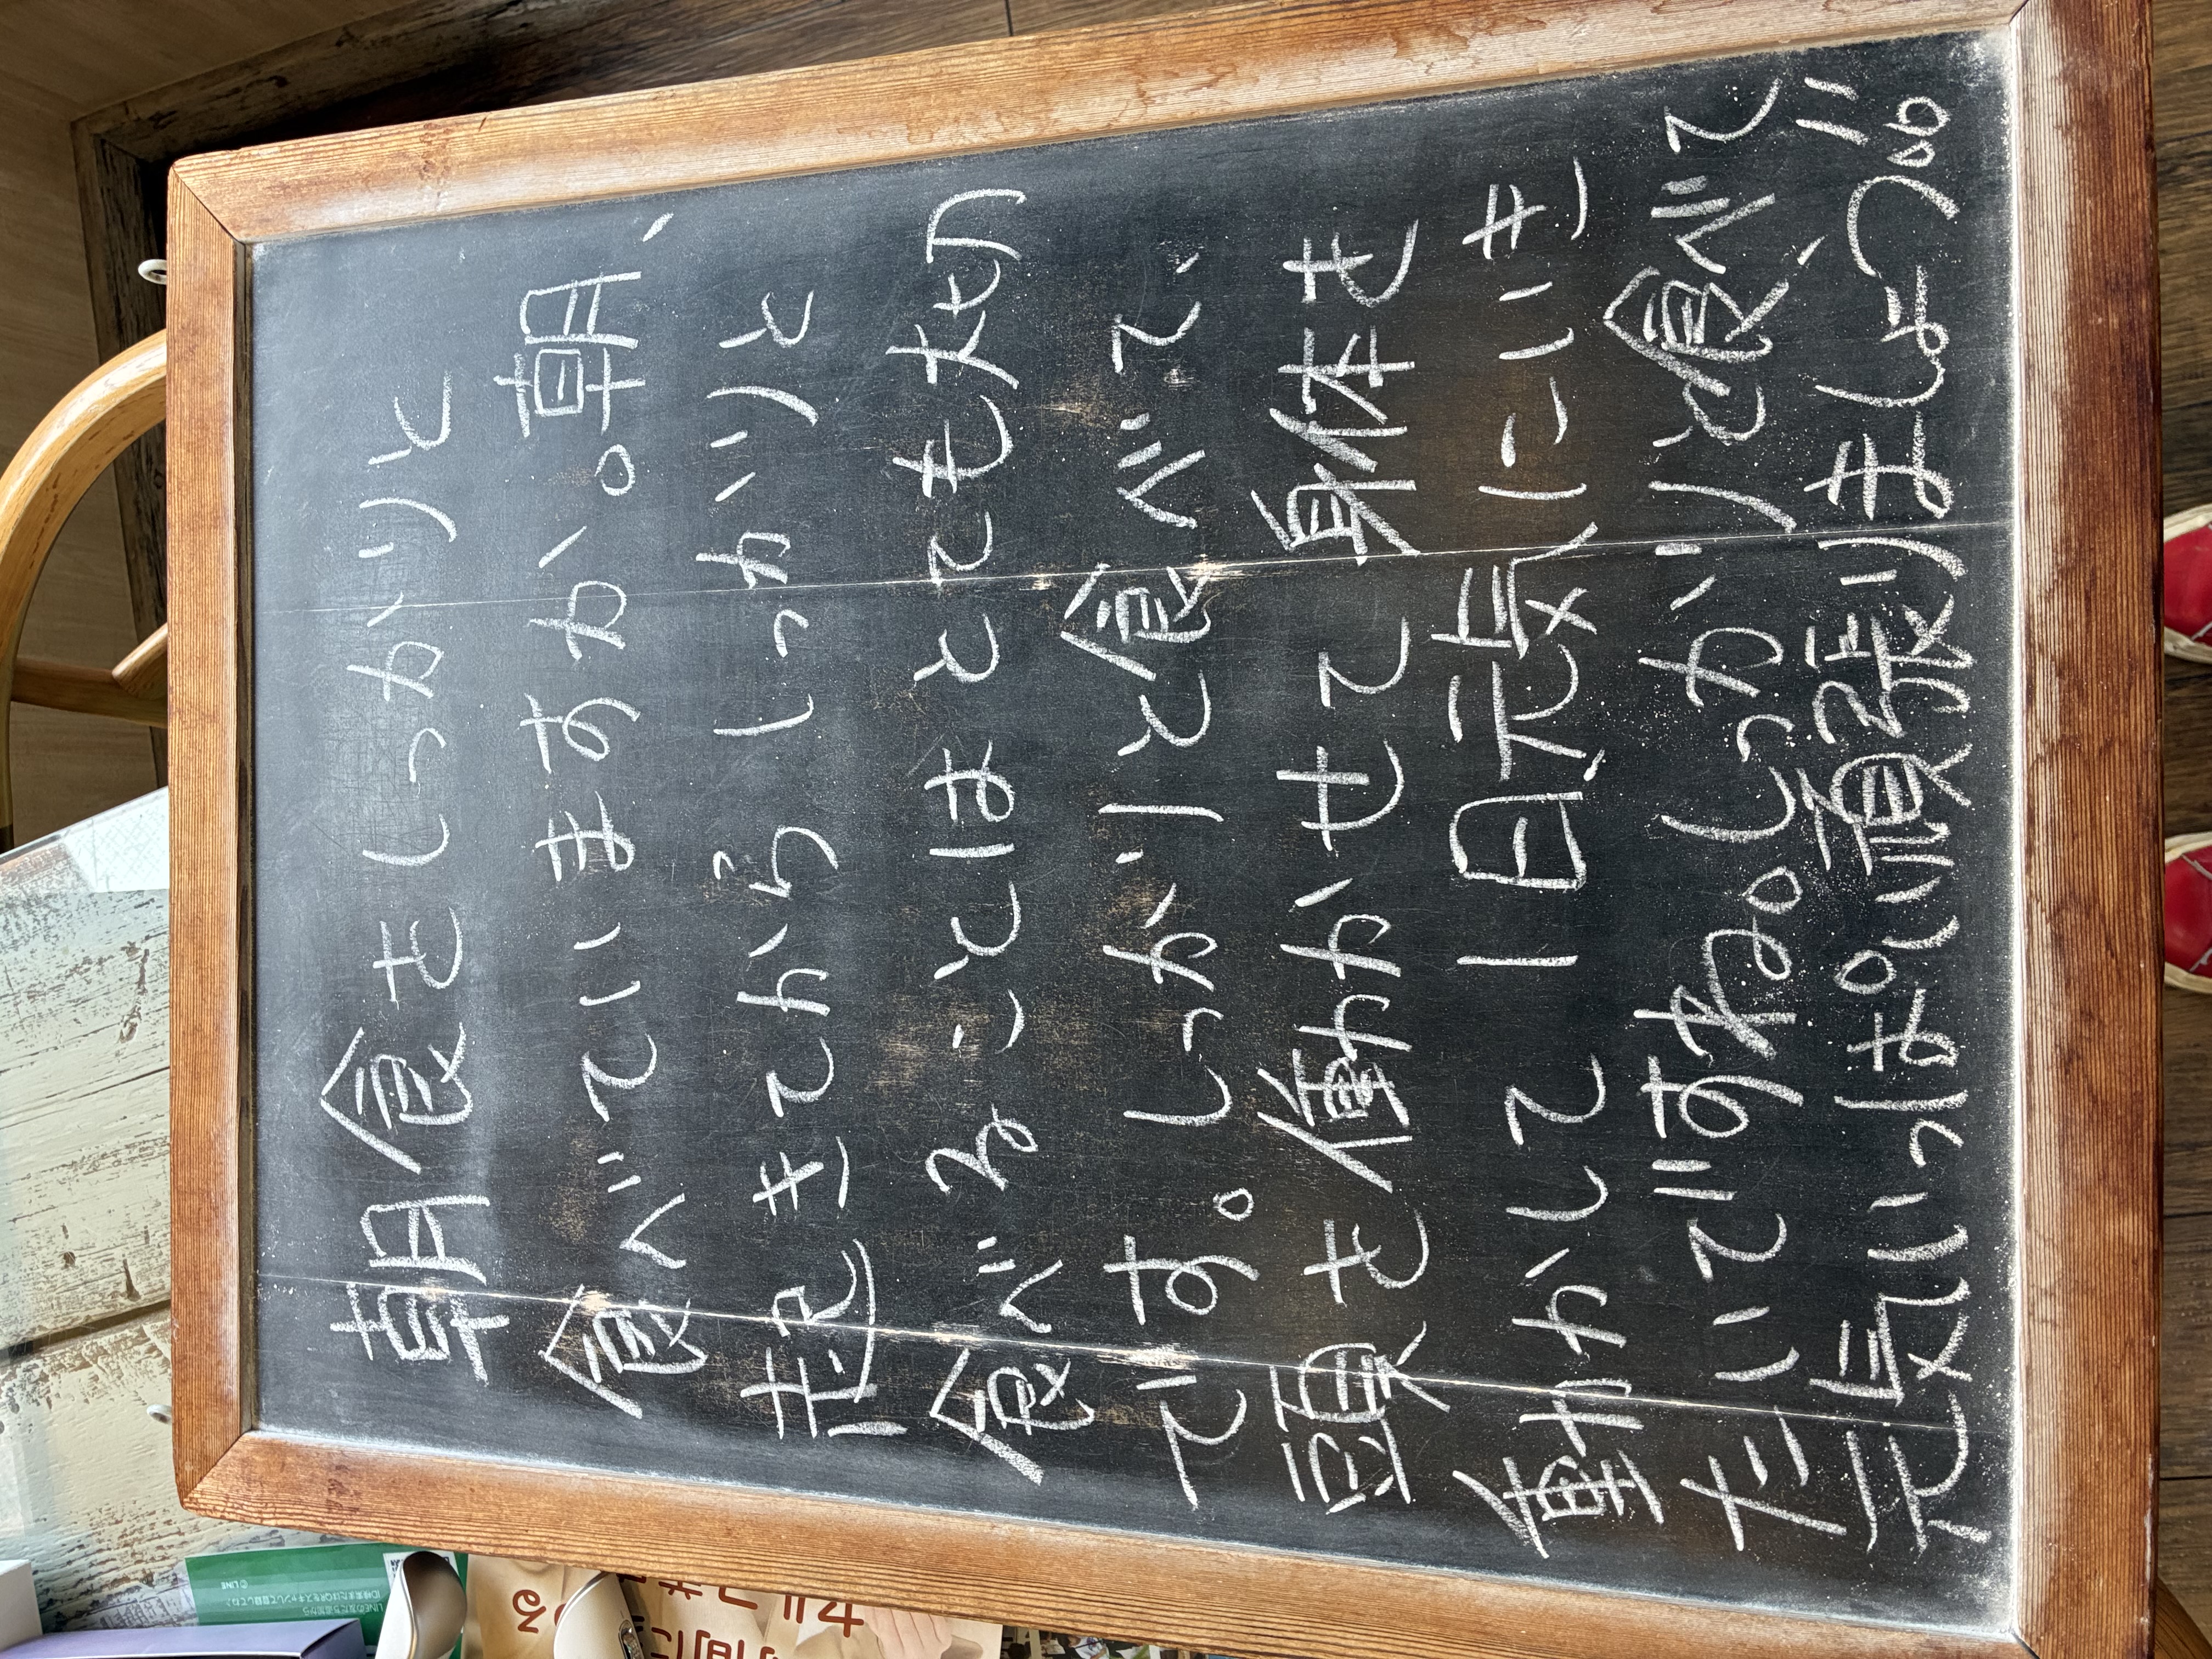 朝食をしっかりと
食べていますか。朝、
起きてからしっかりと
食べることはとても大切
です。しっかりと食べて、
頭を働かせて身体を
働かして1日元気にいき
たいですね。しっかりと食べて、
元気いっぱい頑張りましょう!!